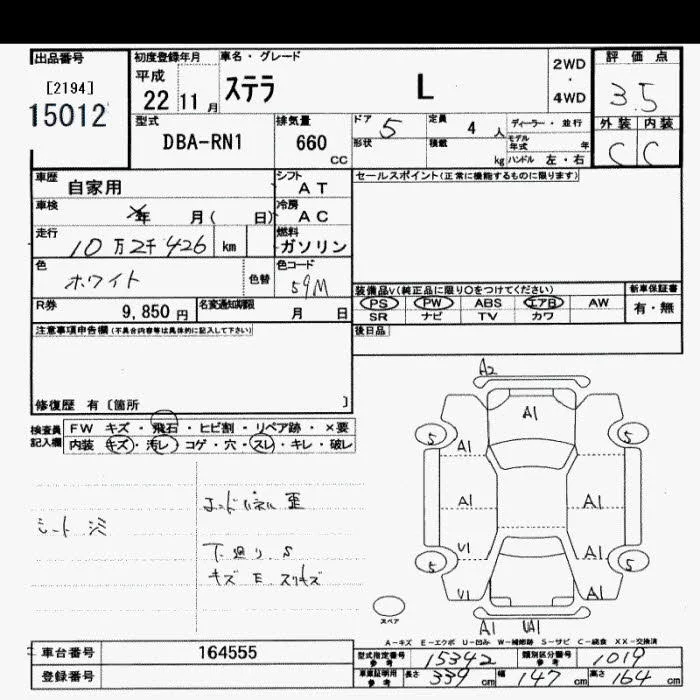 出品番号 初度登録年月 車名・グレード 評価点
[2194] 平成 2WD
15012 22 11 月 ステラ L ・ 3.5
4WD
型式 排気量 ドア 5 定員 4 人 ディーラー・並行 外装 内装
DBA-RN1 660 cc 形状 積載 kg モデル年式 年 C C
ハンドル 左・右
車歴 自家用 シフト AT セールスポイント(正常に機能するものに限ります)
車検 年 月( 日) 冷房 AC
走行 10万2千426 km 燃料 ガソリン
色 ホワイト 色替 色コード 59M 装備品V(純正品に限り○をつけてください) 新車保証書
PS PW ABS エアB AW 有・無
R券 9,850円 名変通知期限 月 日 SR ナビ TV カワ
注意事項申告欄(不具合内容等は具体的に記入して下さい) 後日品
修復歴 有〔箇所 〕
検査員記入欄 FW キズ・飛石・ヒビ割・リペア跡・×要
内装 キズ・汚レ・コゲ・穴・スレ・キレ・破レ
シート
エンドパネル 歪
下廻り S
キズ E スリキズ
A2
A1
5 5
A1
A1 A1
U1 A1
5 5
U1 A1
スペア
A1 UA1
A-キズ E-エクボ U-凹み W-補修跡 S-サビ C-腐食 XX-交換済
車台番号 164555
登録番号
型式指定番号 参考 15342 類別区分番号 参考 1019
車庫証明用 参考 長さ 339 cm 幅 147 cm 高さ 164 cm